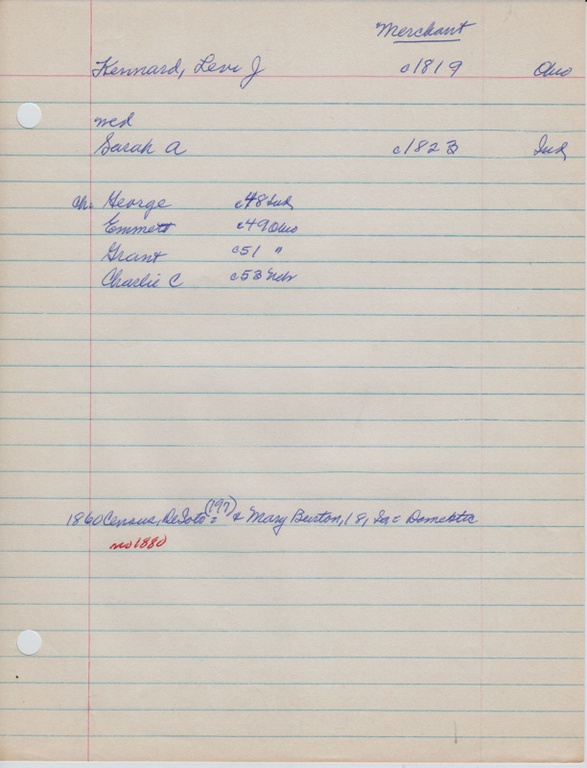 Merchant
Kennard, Levi J c1819 Ohio
md
Sarah A c1823 Ind
Ch. George c48 Ind
Emmett c49 Ohio
Grant c51 "
Charlie C c53 Nebr
1860 Census, DeSoto = (197) & Mary Burton, 18, Ia = Domestic
no 1880